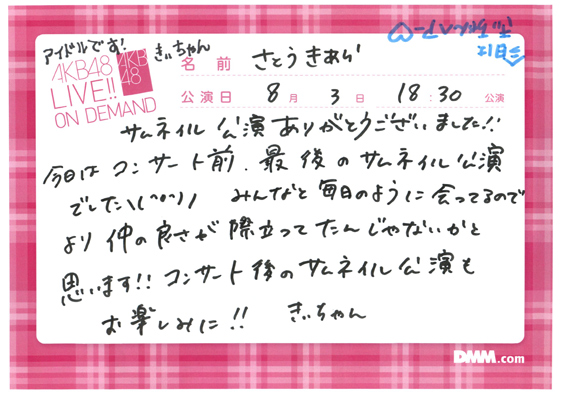 アイドルです！
きぃちゃん
AKB48
LIVE!!
ON DEMAND
AKB
48
名前 さとうきあら
公演日 8月 3日 18:30 公演
サムネイル公演ありがとうございました!!
今日はコンサート前、最後のサムネイル公演
でした\(^o^)/ みんなと毎日のように会ってるので
より仲の良さが際立ってたんじゃないかと
思います!! コンサート後のサムネイル公演も
お楽しみに!! きぃちゃん
DMM.com